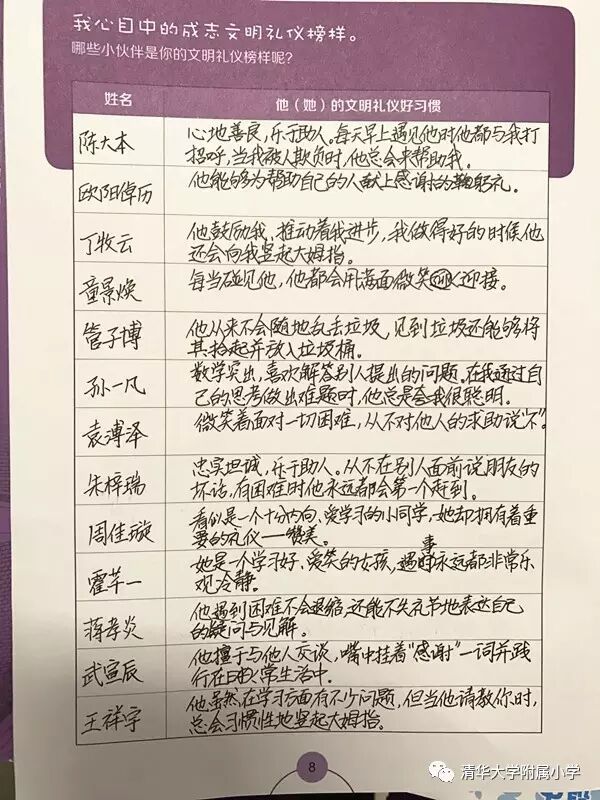 我心目中的成志文明礼仪榜样。
哪些小伙伴是你的文明礼仪榜样呢?
姓名 他(她)的文明礼仪好习惯
陈大本 心地善良,乐于助人。每天早上遇见他时他都与我打
招呼,当我被人欺负时,他总会来帮助我。
欧阳倬历 他能够为帮助自己的人献上感谢的鞠躬礼。
丁牧云 他鼓励我,推动着我进步,我做得好的时候他
还会向我竖起大姆指。
童景焕 每当碰见他,他都会用满面微笑迎接。
管子博 他从来不会随地乱丢垃圾,见到垃圾还能够将
其拾起并放入垃圾桶。
孙一凡 数学突出,喜欢解答别人提出的问题。在我通过自
己的思考做出难题时,他总是夸我很聪明。
袁溥泽 微笑着面对一切困难,从不对他人的求助说“不”。
朱梓瑞 忠实坦诚,乐于助人。从不在别人面前说朋友的
坏话,有困难时他永远都会第一个赶到。
周佳璇 看似是一个十分内向、爱学习的小同学,她却拥有着重
要的礼仪——赞美。
霍芊一 她是一个学习好、爱笑的女孩,遇事时永远都非常乐
观冷静。
蒋孝炎 他遇到困难不会退缩,还能不失礼节地表达自己
的疑问与见解。
武宣辰 他擅于与他人交谈,嘴中挂着“感谢”一词并践
行在日常生活中。
王祥宇 他虽然在学习方面有不少问题,但当他请教你时,
总会习惯性地竖起大姆指。
8
清华大学附属小学